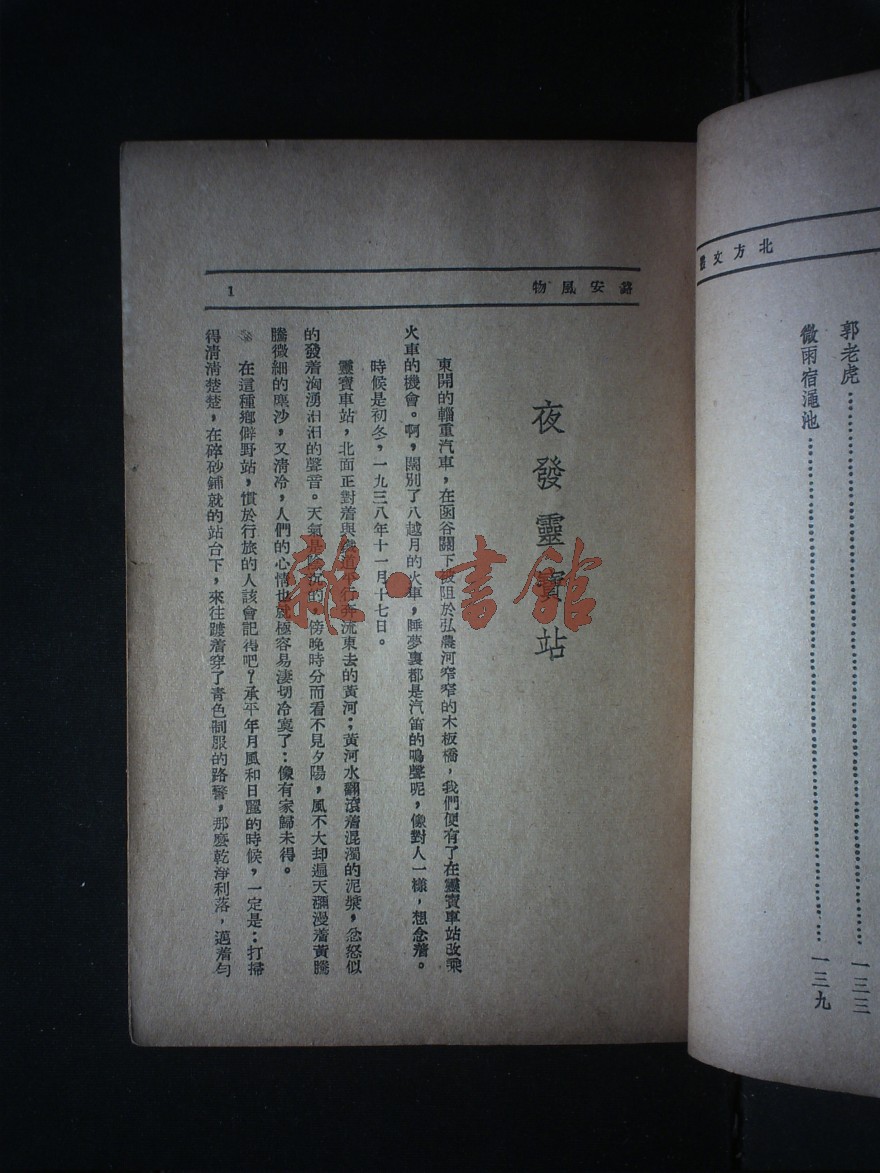 北方文
郭老虎……………………………………一三三
微雨宿澠池……………………………一三九
潞安風物
1
夜發靈寶站
東開的輜重汽車，在函谷關下被阻於弘農河窄窄的木板橋，我們便有了在靈寶車站改乘
火車的機會。啊，闊別了八越月的火車，睡夢裏都是汽笛的鳴聲呢，像對人一樣，想念着。
時候是初冬，一九三八年十一月十七日。
靈寶車站，北面正對着與鐵道平行奔流東去的黃河；黃河水翻滾着混濁的泥漿，忿怒似
的發着洶湧汩汩的聲音。天氣是陰沉的，傍晚時分而看不見夕陽，風不大却遍天瀰漫着黃騰
騰微細的塵沙，又清冷，人們的心情也就極容易淒切冷寞了：像有家歸未得。
在這種鄉僻野站，慣於行旅的人該會記得吧？承平年月風和日麗的時候，一定是：打掃
得清清楚楚，在碎砂鋪就的站台下，來往踱着穿了青色制服的路警，那麼乾淨利落，邁着勻
雜·書館